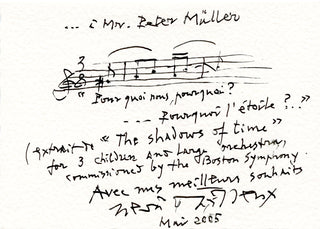 ... à Mr. Peter Müller
3
8
" Pourquoi nous, pourquoi ?
--- Pourquoi l'étoile ?.. "
(extrait de " The shadows of time "
for 3 children and large orchestra,
commissioned by the Boston Symphony.
Avec mes meilleurs souhaits
Mai 2005